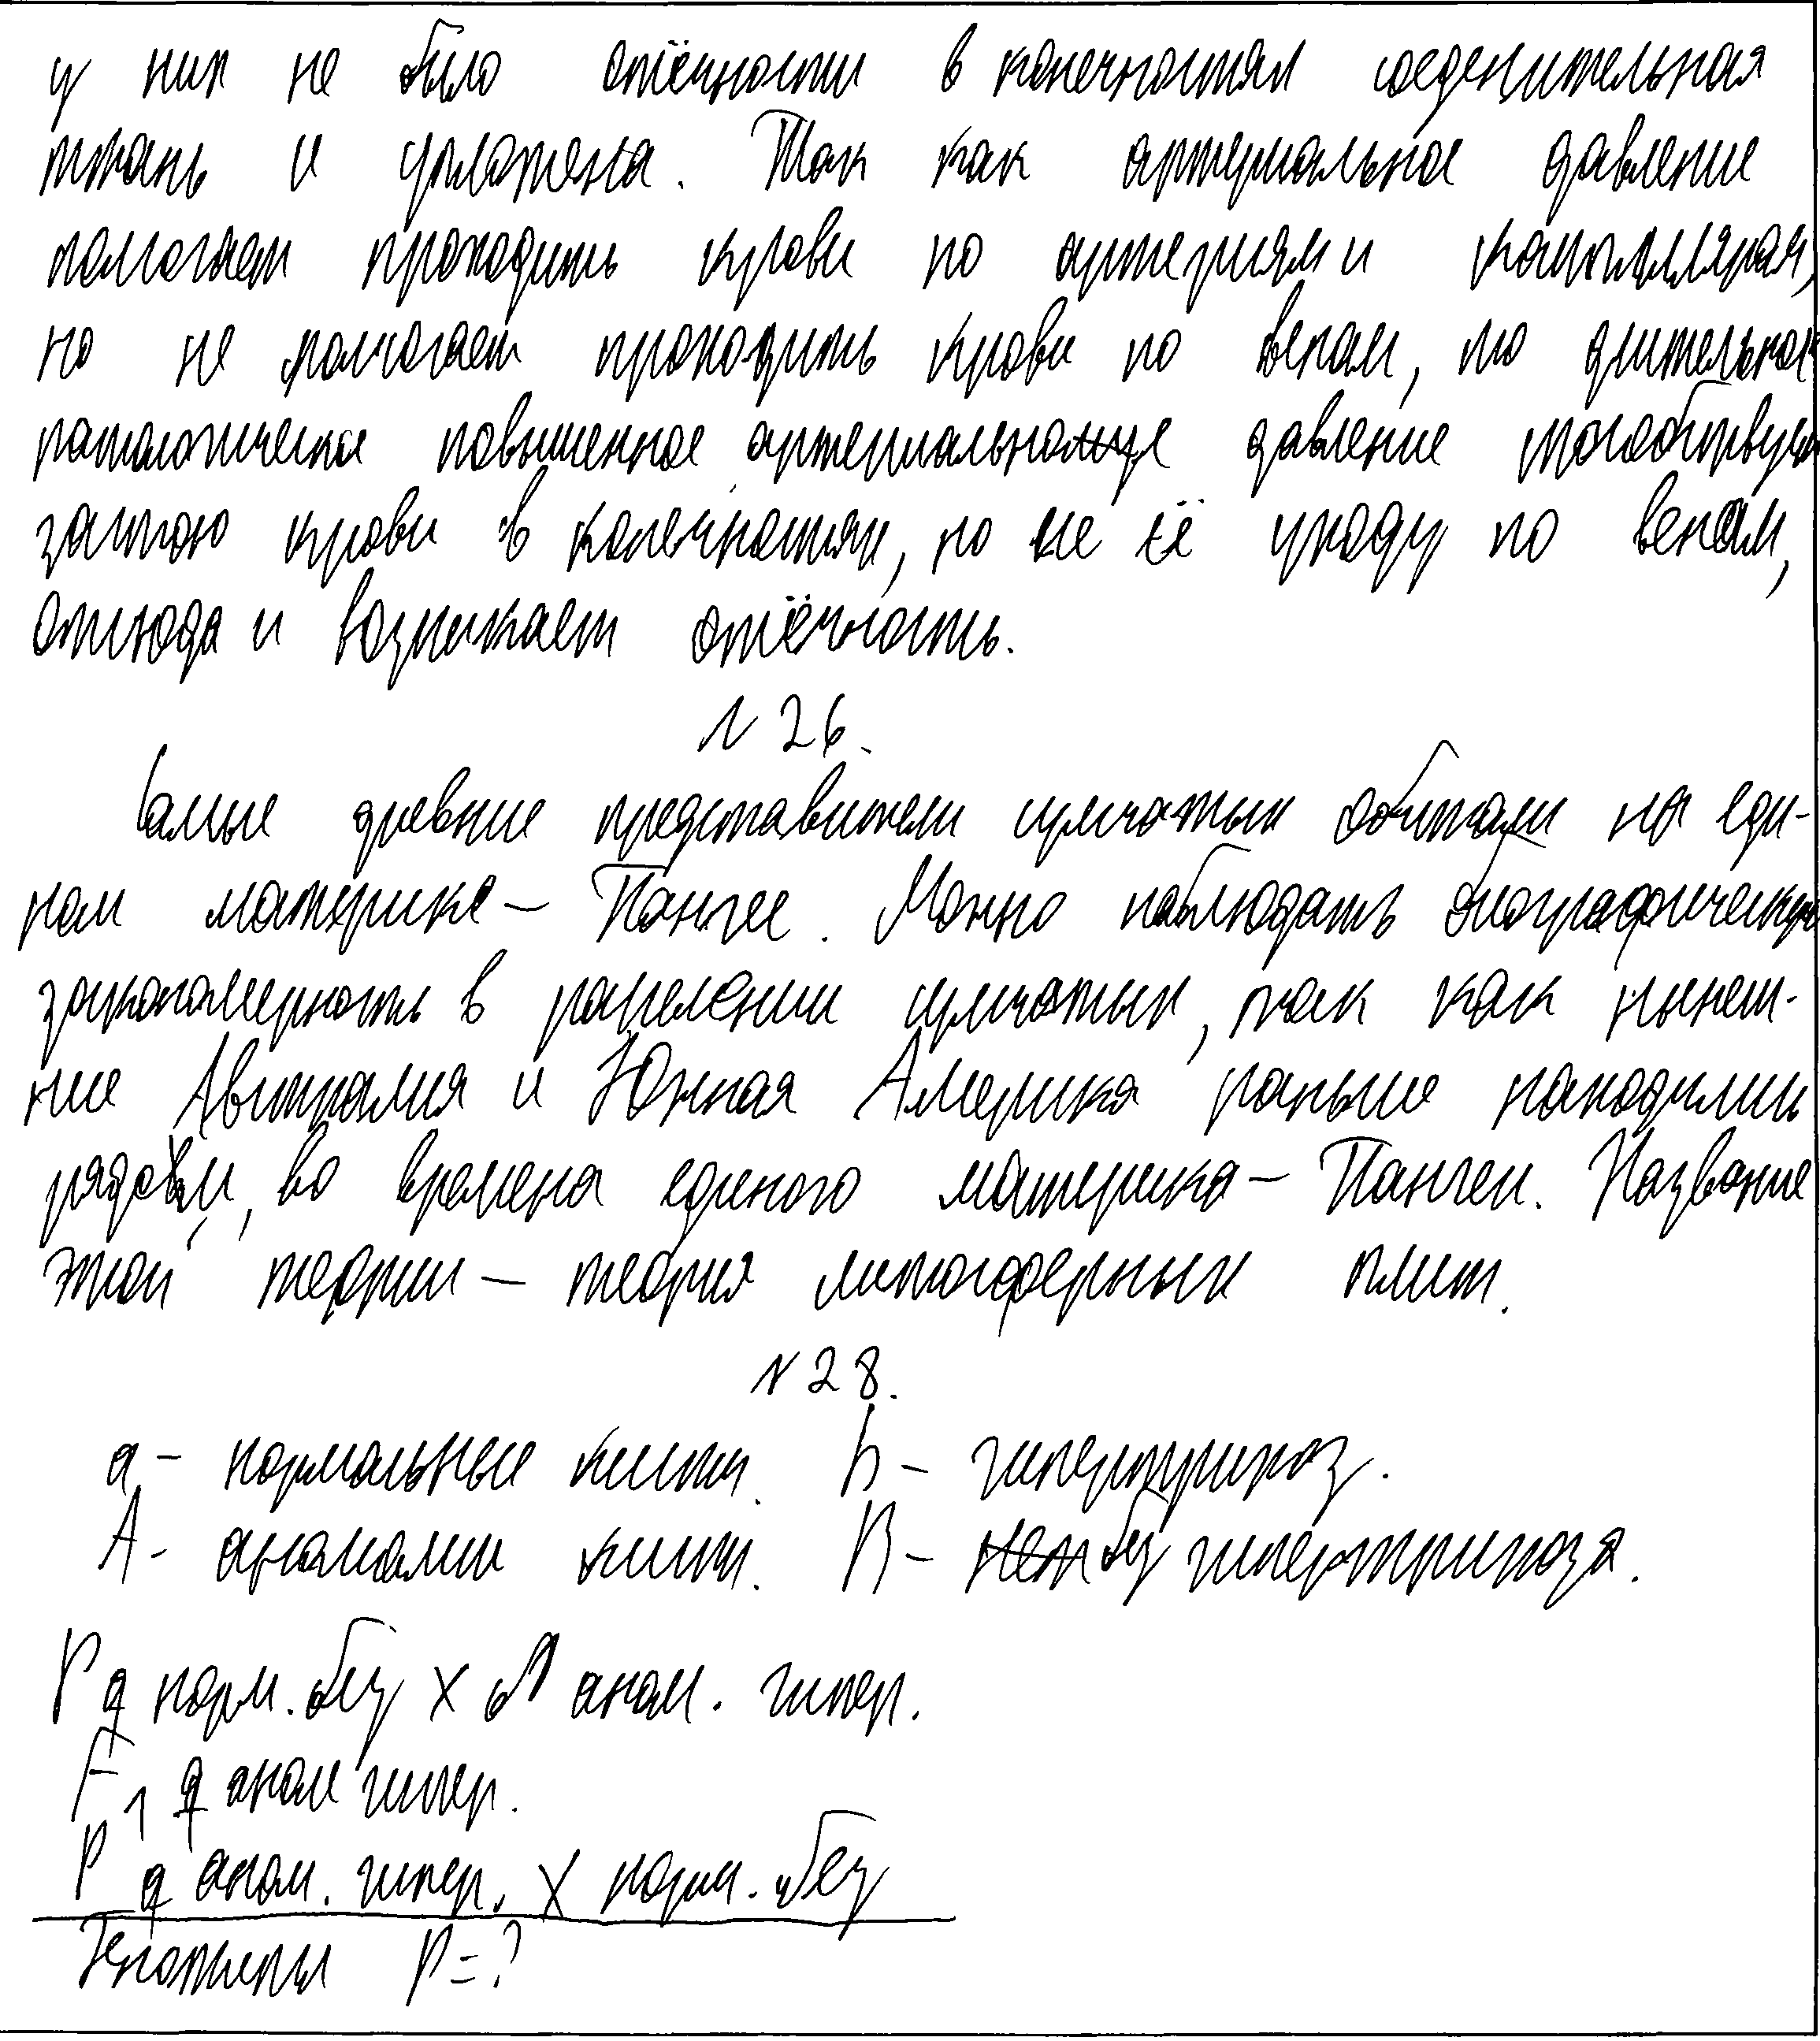 у них не было отёчности в конечностях соеденительная
ткань и уплотнена. Так как артериальное давление
помогает проходить крови по артериям и капиллярам,
но не помогает проходить крови по венам, то длительное
патологическое повышенное артериальное давление способствует
застою крови в конечностях, но не её уходу по венам,
отсюда и возникает отёчность.
N 26.
Самые древние представители сумчатых обитали на еди-
ном материке – Пангее. Можно наблюдать биографическую
закономерность в расселении сумчатых, так как нынеш-
ние Австралия и Южная Америка раньше находились
рядом, во времена единого материка – Пангеи. Название
этой теории – теория литосферных плит.
N 28.
a – нормальные кисти. b – гипертрихоз.
A – аномалии кисти. B – без гипертрихоза.
P ♀ норм. без x ♂ аном. гипер.
F1 ♀ аном гипер.
P ♀ аном. гипер. x норм. без
Генотипы P = ?